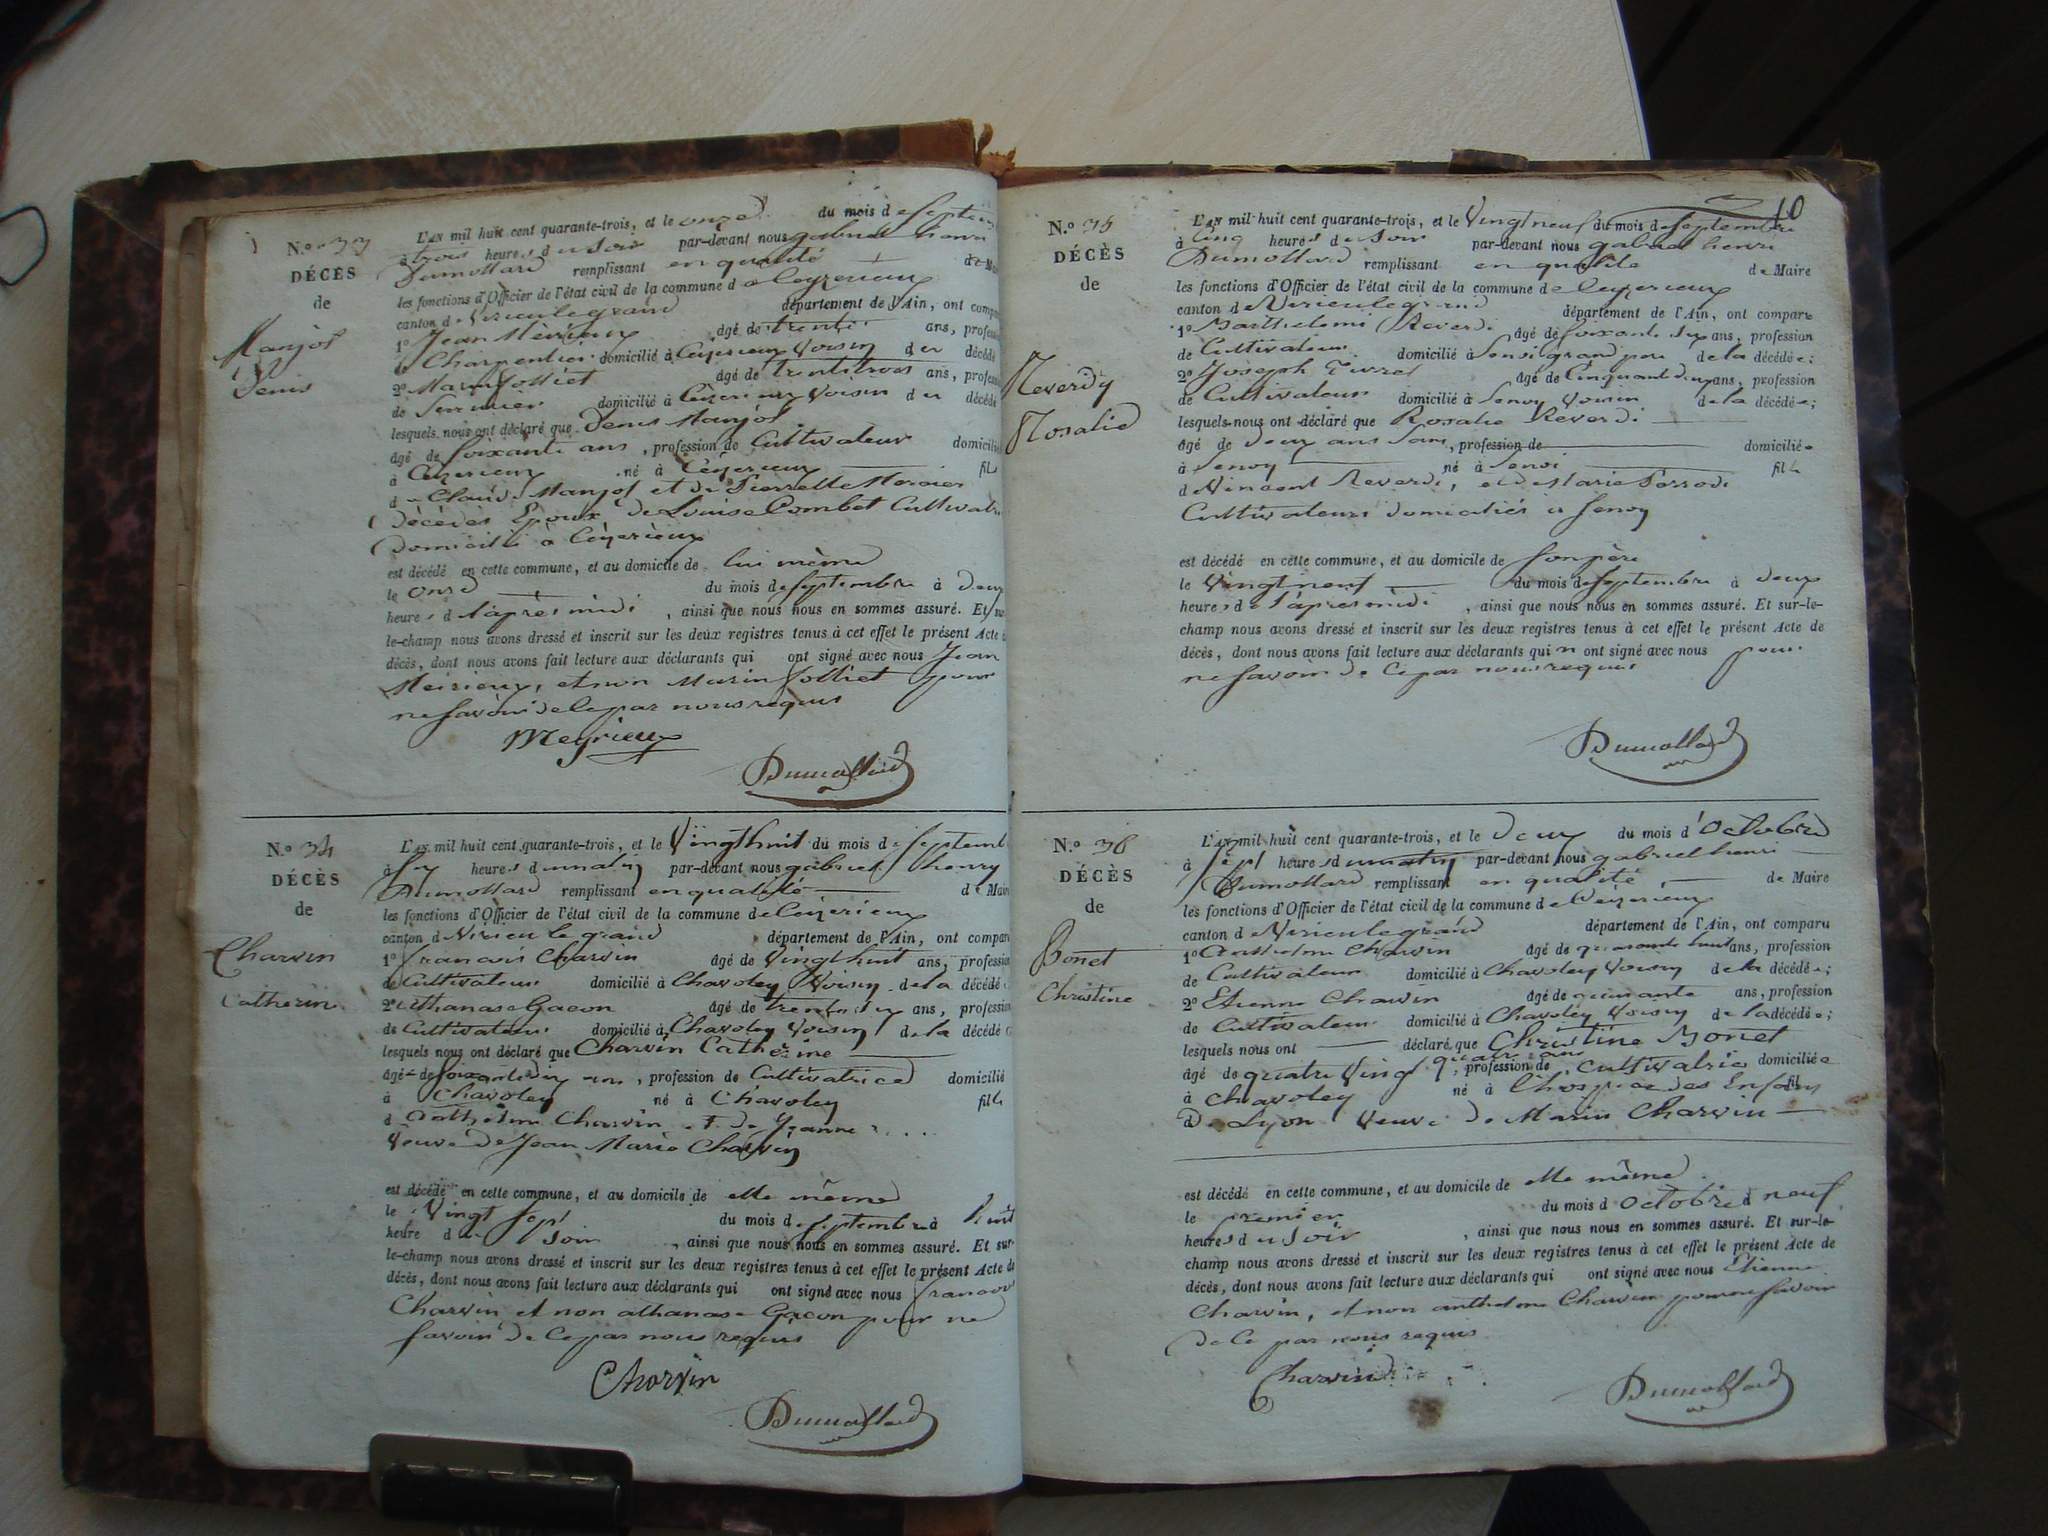 N.º 33
DÉCÈS
de
Manjot
Denis
L'AN mil huit cent quarante-trois, et le onze du mois de Septem
à trois heures du Soir par-devant nous gabriel henri
Dumollard remplissant en qualité de Mai
les fonctions d'Officier de l'état civil de la commune de Ceyzerieux
canton de Virieu le grand département de l'Ain, ont compar
1º Jean Meirieux âgé de trente ans, profess
de Charpentier domicilié à Ceyzerieux Voisin du décédé
2º Marin Jolliet âgé de trentetrois ans, profess
de domicilié à Ceyzerieux Voisin du décédé
lesquels nous ont déclaré que Denis Manjot
âgé de soixante ans, profession de Cultivateur domicilié
à Ceyzerieux né à Ceyzerieux fils
de Claude Manjot et de Pierrette Mercier
décédés Epoux de Louise Combet Cultivatri
domicilié à Ceyzerieux
est décédé en cette commune, et au domicile de lui même
le onze du mois de Septembre à deux
heures de l'après midi, ainsi que nous nous en sommes assuré. Et sur
le-champ nous avons dressé et inscrit sur les deux registres tenus à cet effet le présent Acte
décès, dont nous avons fait lecture aux déclarants qui ont signé avec nous Jean
Meirieux, et non Marin Jolliet pour
ne savoir de ce par nous requis
Meyrieux
Dumollard
N.º 34
DÉCÈS
de
Charvin
Catherine
L'AN mil huit cent quarante-trois, et le Vingthuit du mois de Septemb
à heures du matin par-devant nous gabriel henry
Dumollard remplissant en qualité de Maire
les fonctions d'Officier de l'état civil de la commune de Ceyzerieux
canton de Virieu le grand département de l'Ain, ont compar
1º francois Charvin âgé de Vingthuit ans, profession
de Cultivateur domicilié à Chavoley Voisin de la décédé
2º athanase Gacon âgé de ans, profession
de Cultivateur domicilié à Chavoley Voisin de la décédé
lesquels nous ont déclaré que Charvin Catherine
âgé de soixante dix ans, profession de Cultivatrice domicilié
à Chavoley né à Chavoley fille
d'anthelme Charvin et de Jeanne ....
Veuve de Jean Marie Charvin
est décédé en cette commune, et au domicile de elle même
le Vingt Sept du mois de Septembre à huit
heure du Soir, ainsi que nous nous en sommes assuré. Et sur-
le-champ nous avons dressé et inscrit sur les deux registres tenus à cet effet le présent Acte de
décès, dont nous avons fait lecture aux déclarants qui ont signé avec nous francois
Charvin et non athanase Gacon pour ne
savoir de ce par nous requis
Charvin
Dumollard
10
N.º 35
DÉCÈS
de
Reverdy
Rosalie
L'AN mil huit cent quarante-trois, et le Vingtneuf du mois de Septembre
à Cinq heures du Soir par-devant nous gabriel henri
Dumollard remplissant en qualité de Maire
les fonctions d'Officier de l'état civil de la commune de Ceyzerieux
canton de Virieu le grand département de l'Ain, ont comparu
1º Barthelemi Reverdi âgé de soixante six ans, profession
de Cultivateur domicilié à Senoi grand père de la décédée;
2º Joseph Turrel âgé de Cinquante deux ans, profession
de Cultivateur domicilié à Senoy Voisin de la décédée;
lesquels nous ont déclaré que Rosalie Reverdi
âgé de deux ans Sans, profession de domiciliée
à Senoy né à Senoi fille
de Vincent Reverdi, et de Marie
Cultivateurs domiciliés à Senoy
est décédé en cette commune, et au domicile de son père
le Vingtneuf du mois de Septembre à deux
heures de l'après midi, ainsi que nous nous en sommes assuré. Et sur-le-
champ nous avons dressé et inscrit sur les deux registres tenus à cet effet le présent Acte de
décès, dont nous avons fait lecture aux déclarants qui n ont signé avec nous pour
ne savoir de ce par nous requis
Dumollard
N.º 36
DÉCÈS
de
Bonet
Christine
L'AN mil huit cent quarante-trois, et le Deux du mois d'Octobre
à Sept heures du matin par-devant nous gabriel henri
Dumollard remplissant en qualité de Maire
les fonctions d'Officier de l'état civil de la commune de Ceyzerieux
canton de Virieu le grand département de l'Ain, ont comparu
1º anthelme Charvin âgé de quarante huit ans, profession
de Cultivateur domicilié à Chavoley Voisin de la décédée;
2º Etienne Charvin âgé de quarante ans, profession
de Cultivateur domicilié à Chavoley Voisin de la décédée;
lesquels nous ont déclaré que Christine Bonet
âgé de quatre Vingt quatre ans, profession de Cultivatrice domiciliée
à Chavoley né à l'hospice des Enfans fil
De Lyon Veuve de Marin Charvin
est décédé en cette commune, et au domicile de elle même
le premier du mois d'Octobre à neuf
heures du Soir, ainsi que nous nous en sommes assuré. Et sur-le-
champ nous avons dressé et inscrit sur les deux registres tenus à cet effet le présent Acte de
décès, dont nous avons fait lecture aux déclarants qui ont signé avec nous Etienne
Charvin, et non anthelme Charvin pour ne savoir
de ce par nous requis
Charvin
Dumollard